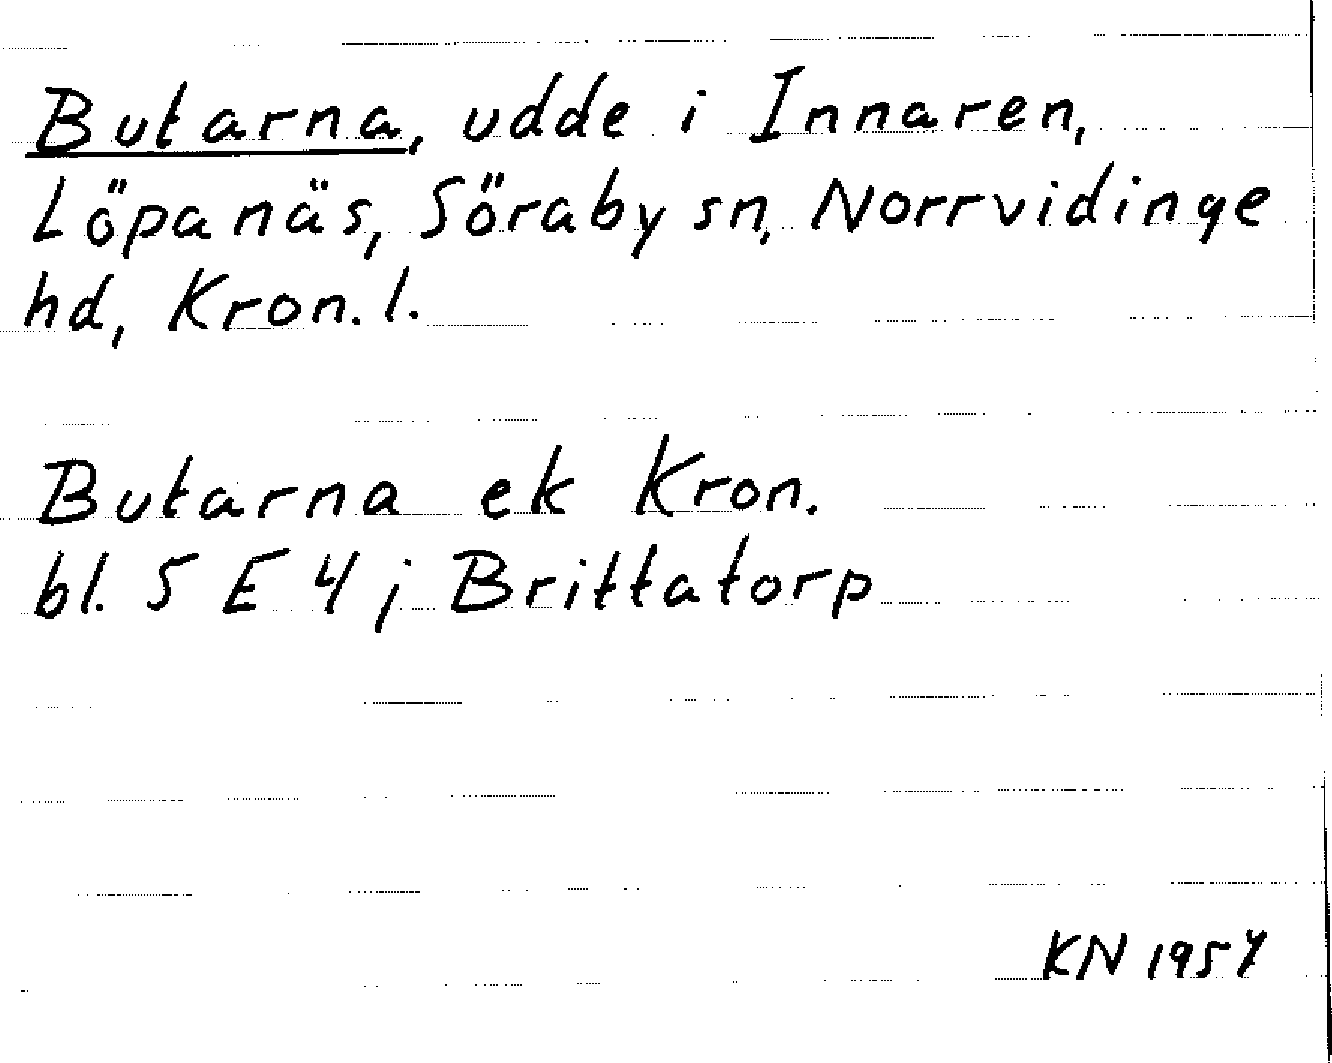 Butarna, udde i Innaren,
Löpanäs, Söraby sn, Norrvidinge
hd, Kron. l.
Butarna ek Kron.
bl. 5 E 4 j Brittatorp
KN